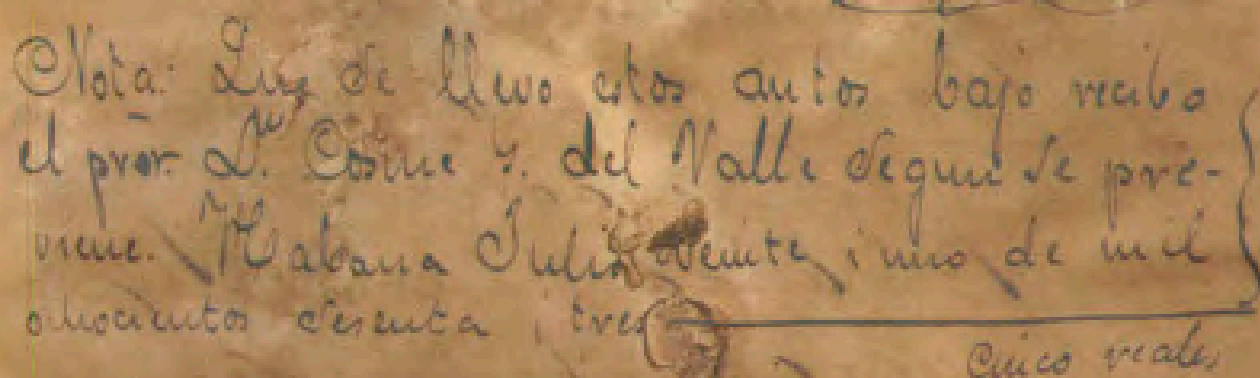 Nota: Que se llevo estos autos bajo recibo
el pror. Dn. Cosme J. del Valle segun se pre-
viene. Habana Julio veinte i uno de mil
ochocientos sesenta i tres
Cinco reales